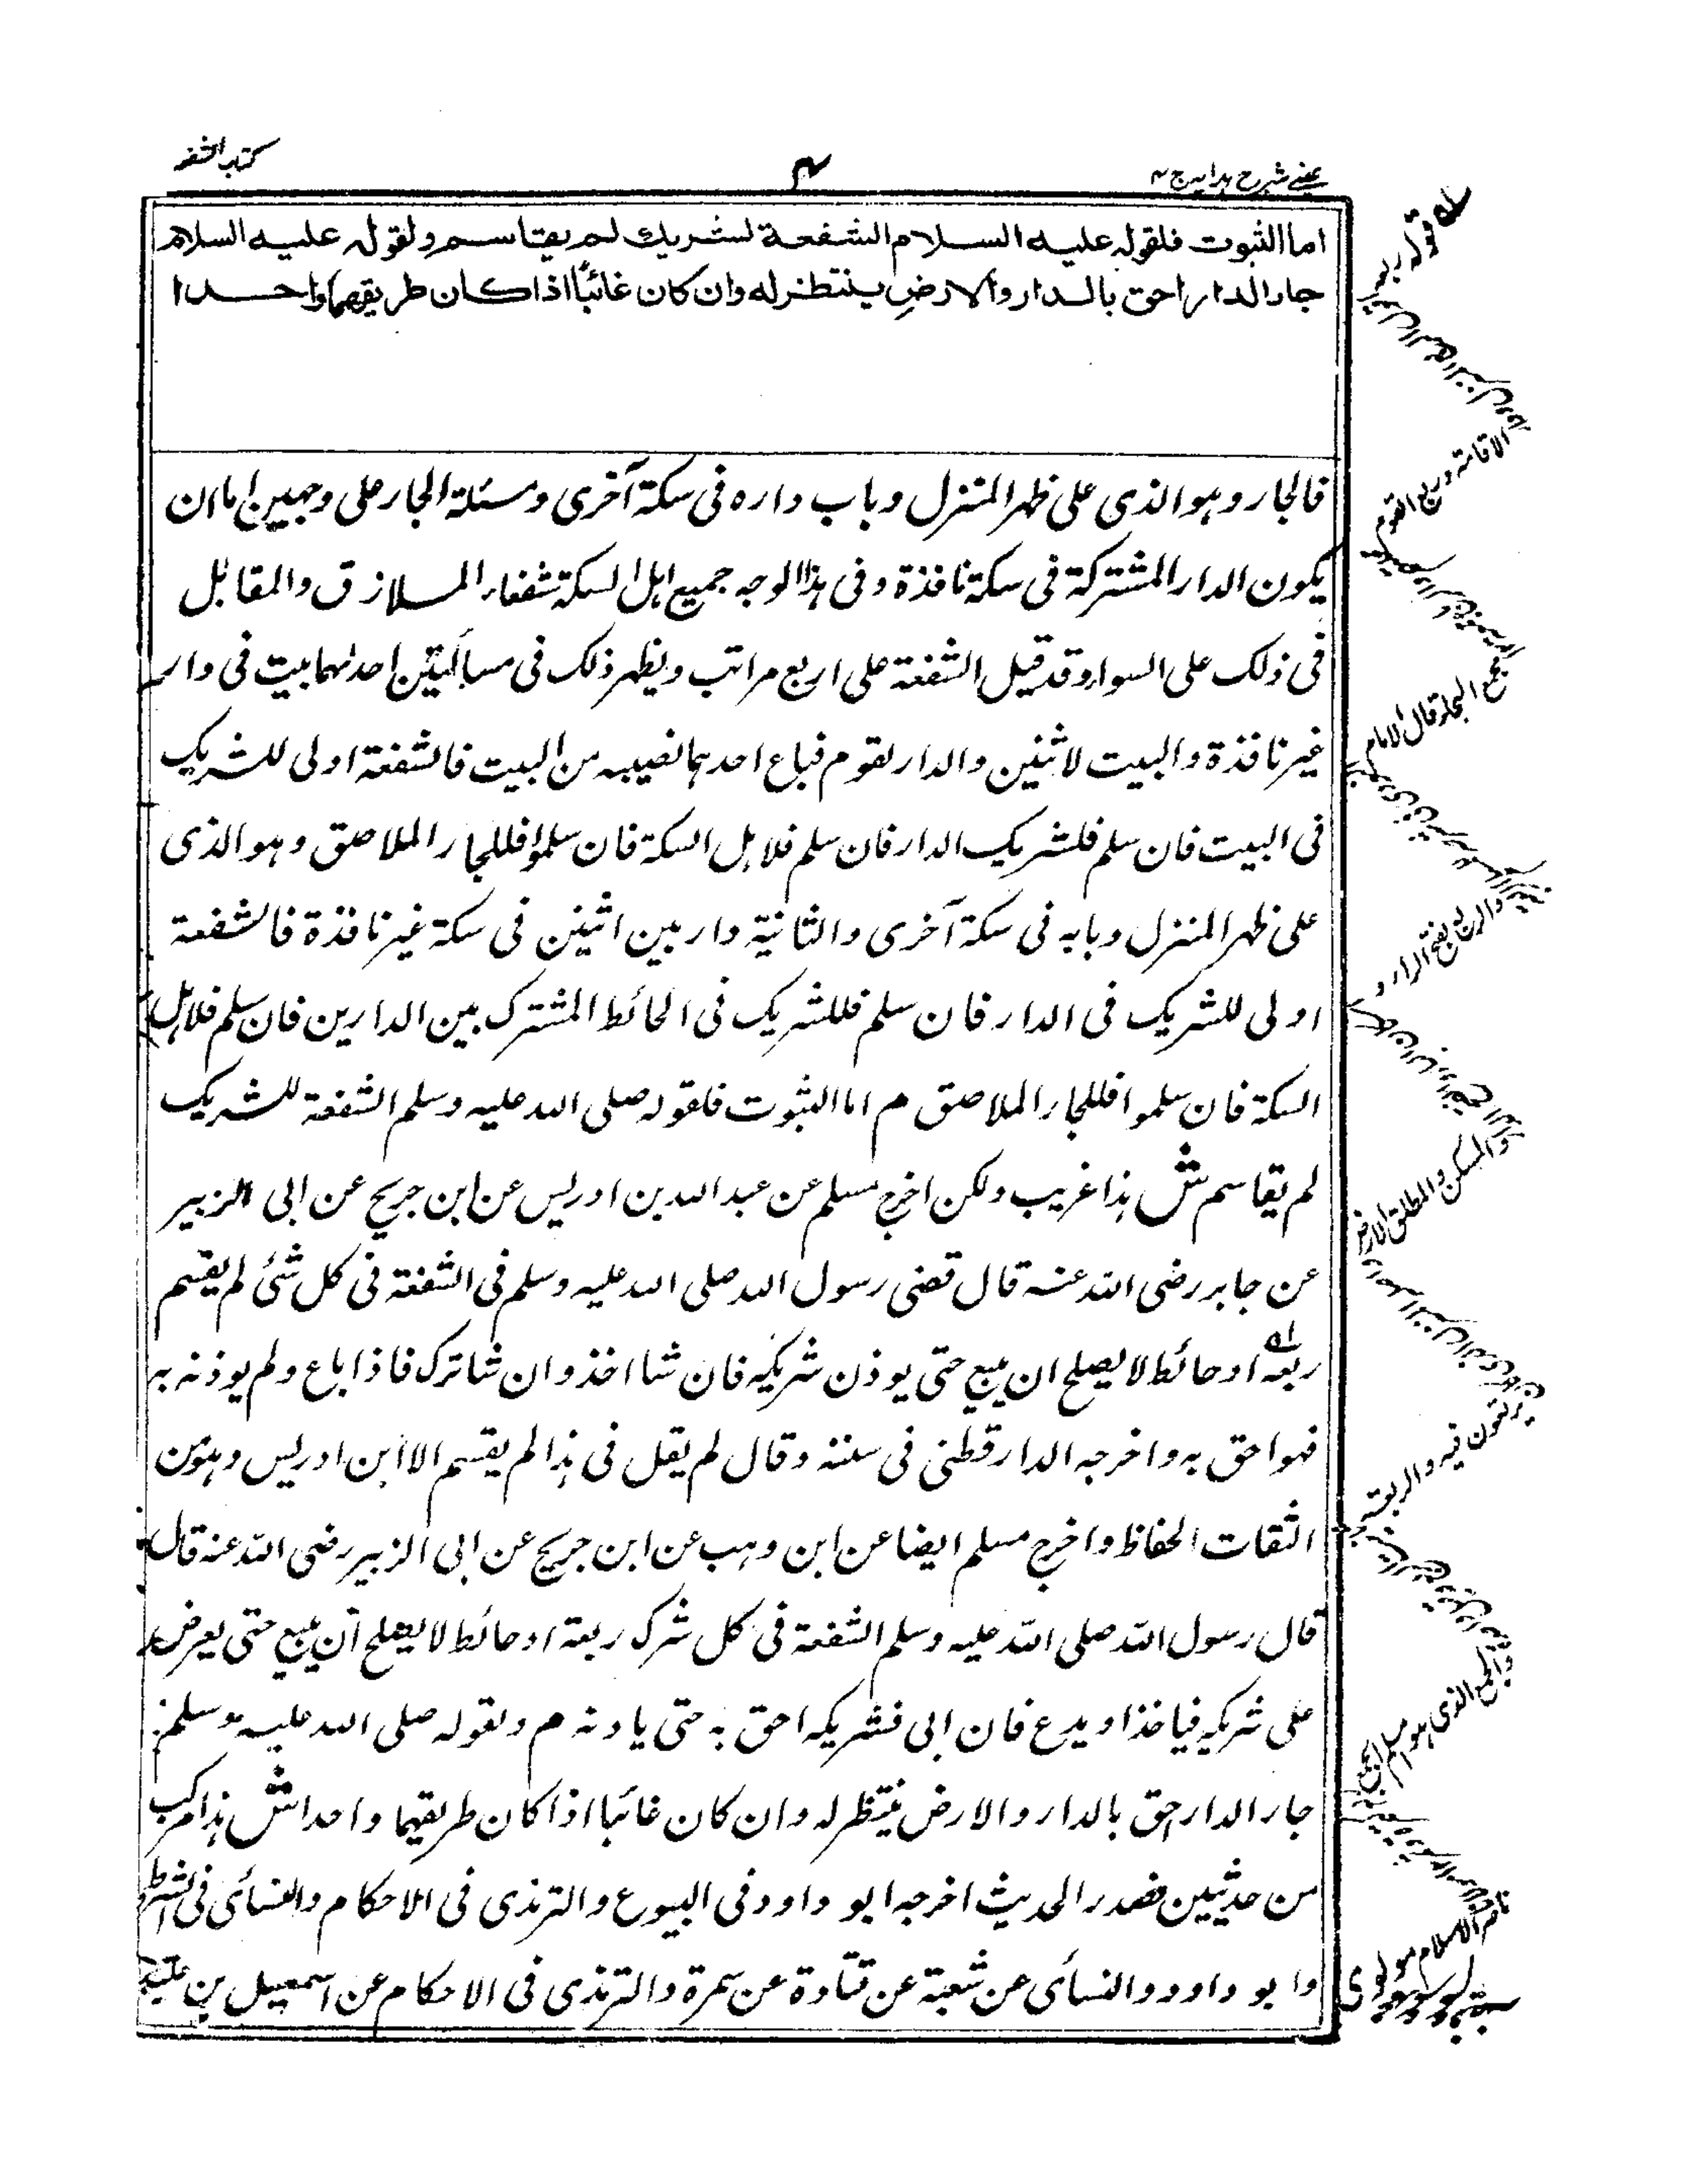 عینی شرح ہدایہ ج ۴
۴
کتاب الشفعہ
اما الثبوت فلقوله عليه السلام الشفعة لشريك لم يقاسم ولقوله عليه السلام
جار الدار احق بالدار والارض ينتظر له وان كان غائبا اذا كان طريقهما واحدا
فالجار وهو الذى على ظهر المنزل وباب داره فى سكة آخرى ومسئلة الجار على وجهين اما ان
يكون الدار المشتركة فى سكة نافذة وفى هذا الوجه جميع اهل السكة شفعاء الملازق والمقابل
فى ذلك على السواء وقد قيل الشفعة على اربع مراتب ويظهر ذلك فى مسألتين احدٰهما بيت فى دار
غير نافذة والبيت لاثنين والدار لقوم فباع احدهما نصيبه من البيت فالشفعة اولى للشريك
فى البيت فان سلم فلشريك الدار فان سلم فلاهل السكة فان سلموا فللجار الملاصق وهو الذى
على ظهر المنزل وبابه فى سكة آخرى والثانية دار بين اثنين فى سكة غير نافذة فالشفعة
اولى للشريك فى الدار فان سلم فللشريك فى الحائط المشترك بين الدارين فان سلم فلاهل
السكة فان سلموا فللجار الملاصق م اما الثبوت فلقوله صلى الله عليه وسلم الشفعة للشريك
لم يقاسم ش هذا غريب ولكن اخرج مسلم عن عبد الله بن ادريس عن ابن جريج عن ابى الزبير
عن جابر رضى الله عنه قال قضى رسول الله صلى الله عليه وسلم فى الشفعة فى كل شئ لم يقسم
ربعه او حائط لا يصلح ان يبيع حتى يوذن شريكه فان شا اخذ وان شا ترك فاذا باع ولم يوذنه به
فهو احق به واخرجه الدارقطنى فى سننه وقال لم يقل فى هذا لم يقسم الا ابن ادريس وهو من
الثقات الحفاظ واخرج مسلم ايضا عن ابن وهب عن ابن جريج عن ابى الزبير رضى الله عنه قال
قال رسول الله صلى الله عليه وسلم الشفعة فى كل شرك ربعة او حائط لا يصلح ان يبيع حتى يعرض
على شريكه فياخذ او يدع فان ابى فشريكه احق به حتى ياذنه م ولقوله صلى الله عليه وسلم
جار الدار احق بالدار والارض ينتظر له وان كان غائبا اذا كان طريقهما واحدا ش هذا مركب
من حديثين فصدر الحديث اخرجه ابو داود فى البيوع والترمذى فى الاحكام والنسائى فى الشروط
وابو داود والنسائى عن شعبة عن قتادة عن سمرة والترمذى فى الاحكام عن اسمعيل بن علية
قوله ربعه
الاقامة وربع القوم
بجمع المحلة قال الامام
والربع بفتح الراء و
والمسكن والمطلق الارض
يرتعون فيه والربعة
الجمع الذى هو اسم الجمع
ناصر الاسلام مولوى